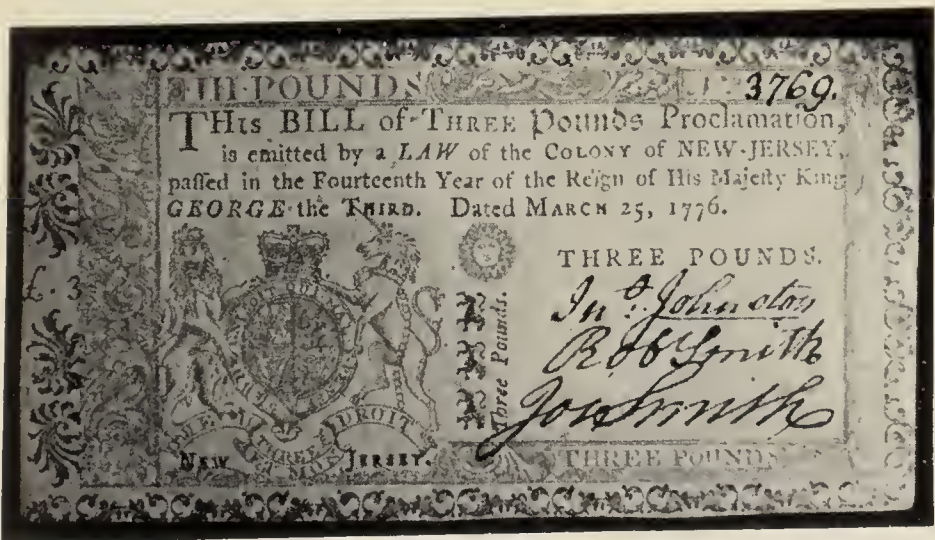 III·POUNDS 3769.
THis BILL of THREE Pounds Proclamation,
is emitted by a LAW of the COLONY of NEW-JERSEY,
paſſed in the Fourteenth Year of the Reign of His Majeſty King
GEORGE the THIRD. Dated MARCH 25, 1776.
THREE POUNDS.
£. 3
Jnº. Johnston
Robt Smith
Jos Smith
Three Pounds.
DROIT
NEW JERSEY.
THREE POUNDS